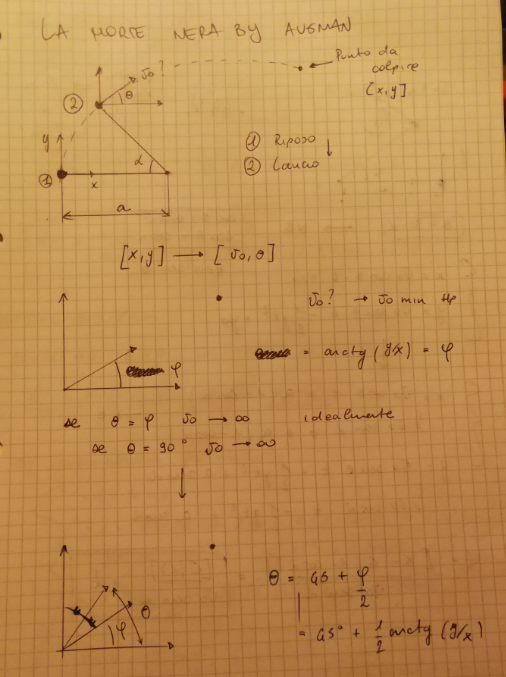 LA MORTE NERA BY AUSMAN
v₀?
Punto da
colpire
[x,y]
θ
②
y
① Riposo
② Lancio
α
①
x
a
[x,y] → [v₀,θ]
v₀? → v₀ min Hp
= arctg (y/x) = φ
φ
se θ = φ v₀ → ∞ idealmente
se θ = 90° v₀ → ∞
θ = 45 + φ/2
θ
φ
= 45° + 1/2 arctg (y/x)